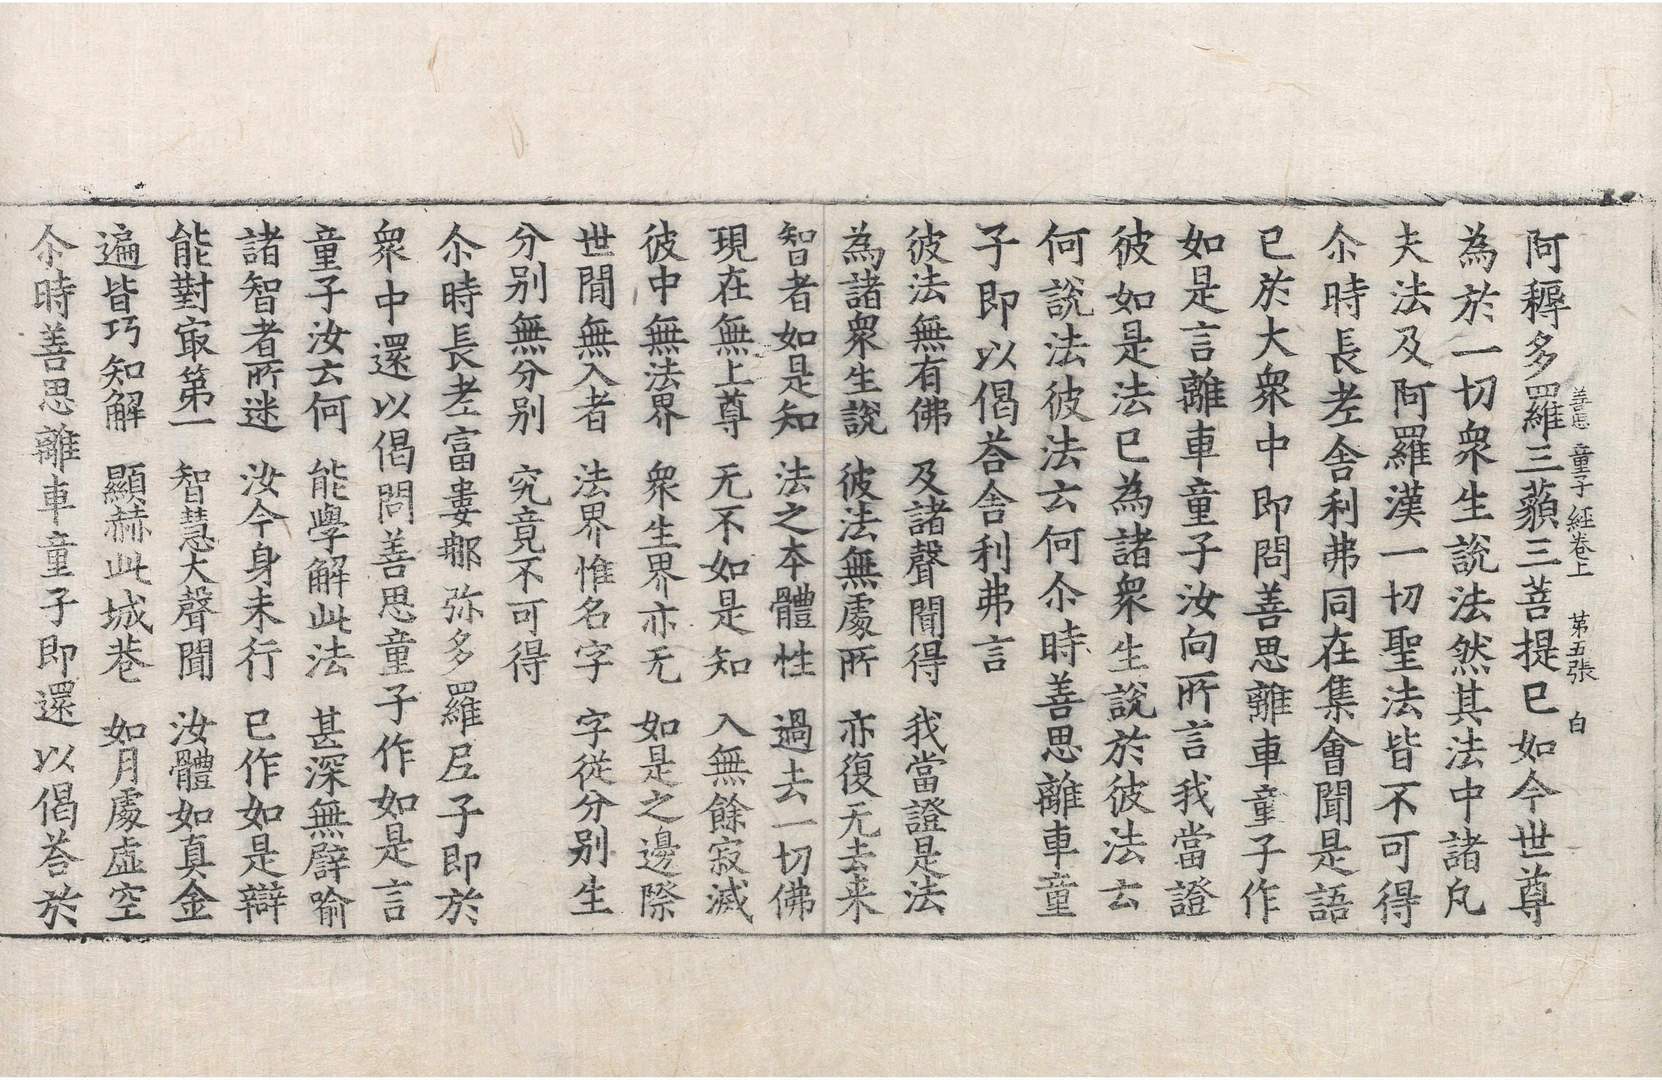 善思童子經卷上 第五張 白
阿耨多羅三藐三菩提已如今世尊
為於一切衆生說法然其法中諸凡
夫法及阿羅漢一切聖法皆不可得
尒時長老舍利弗同在集會聞是語
已於大衆中即問善思離車童子作
如是言離車童子汝向所言我當證
彼如是法已為諸衆生說於彼法云
何說法彼法云何尒時善思離車童
子即以偈荅舍利弗言
彼法無有佛 及諸聲聞得 我當證是法
為諸衆生說 彼法無處所 亦復无去来
智者如是知 法之本體性 過去一切佛
現在無上尊 无不如是知 入無餘寂滅
彼中無法界 衆生界亦无 如是之邊際
世間無入者 法界惟名字 字從分別生
分別無分別 究竟不可得
尒時長老富婁那弥多羅尼子即於
衆中還以偈問善思童子作如是言
童子汝云何 能學解此法 甚深無譬喻
諸智者所迷 汝今身未行 已作如是辯
能對㝡第一 智慧大聲聞 汝體如真金
遍皆巧知解 顯赫此城巷 如月處虛空
尒時善思離車童子即還以偈荅於